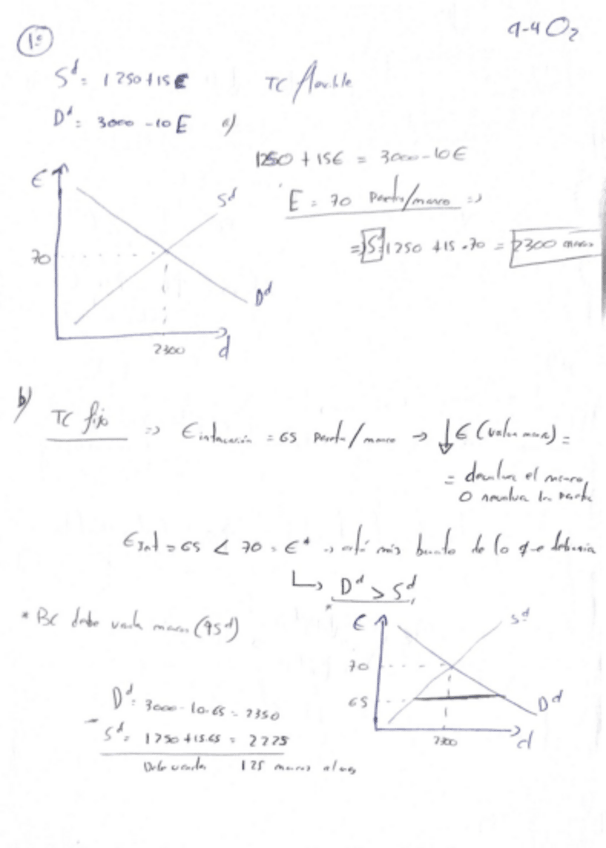 1º
9-4 O2
S^d = 1250+15E TC flexible
D^d = 3000-10E a)
1250 + 15E = 3000-10E
E = 70 Pesetas/marco =>
=> S^d = 1250 + 15·70 = 2300 marcos
E
S^d
70
D^d
2300
d
b)
TC fijo => E intervención = 65 peseta/marco -> ↓E (valor marco) =
= devalua el marco
O revalua la peseta
E Int = 65 < 70 = E* -> está más barato de lo que debería
D^d > S^d
* BC debe vender marcos (↑S^d)
E
S^d
70
65
D^d
2300
d
D^d = 3000-10·65 = 2350
- S^d = 1250+15·65 = 2225
Debe vender 125 marcos